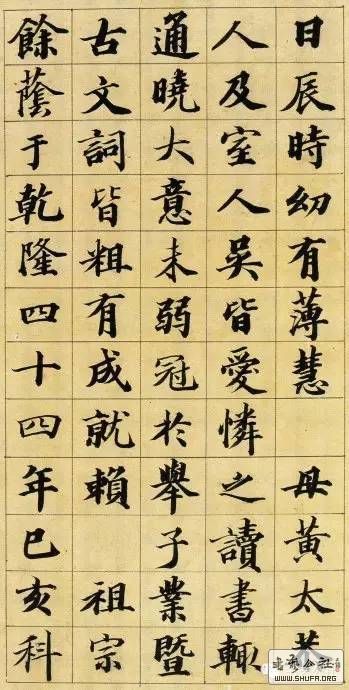 日辰時幼有薄慧 母黃太
人及室人吳皆愛憐之讀書輒
通曉大意未弱冠於舉子業暨
古文詞皆粗有成就賴 祖宗
餘蔭于乾隆四十四年巳亥科
WWW.SHUFA.ORG